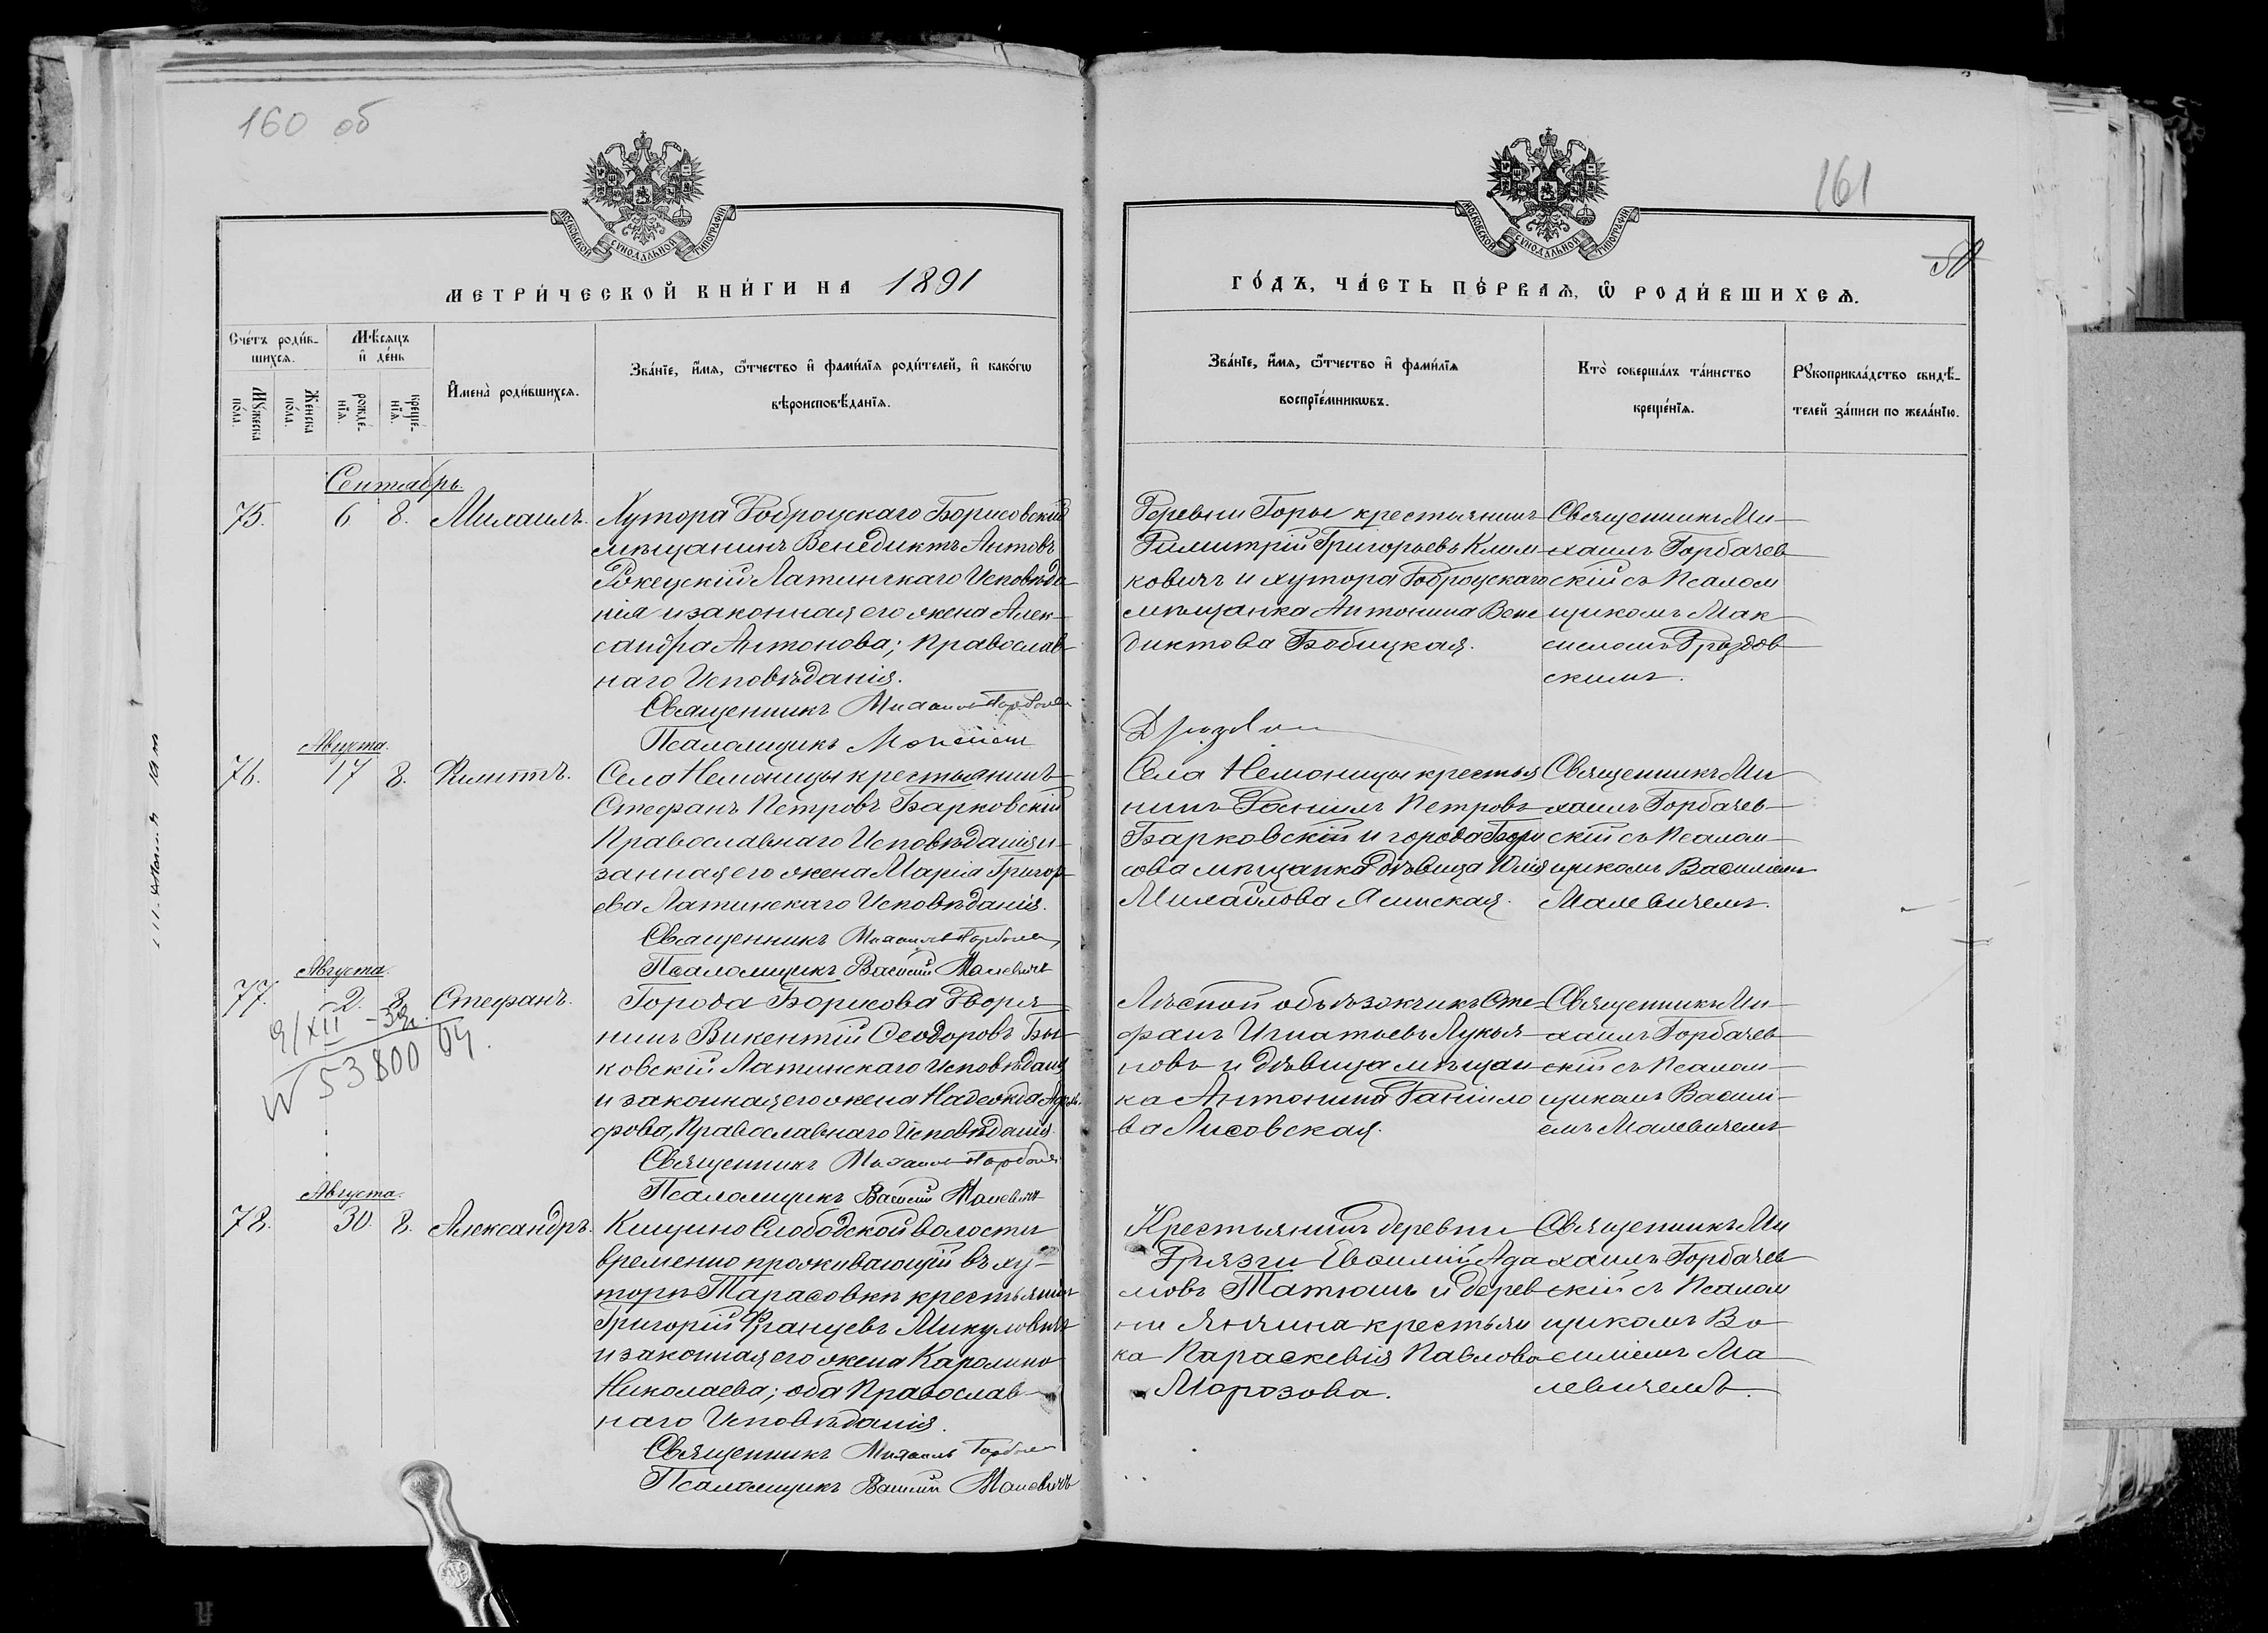 160 об
МОСКОВСКОЙ СѴНОДАЛЬНОЙ ТИПОГРАФІИ
МЕТРИ́ЧЕСКОЙ КНИ́ГИ НА 1891
Сче́тъ роди́в-
шихся.
Мѣ́сяцъ
и҆ де́нь
Му́жеска
по́ла.
Же́нска
по́ла.
рожде́-
нїѧ.
креще́-
нїѧ.
И҆мена̀ роди́вшихсѧ.
Зва́нїе, и҆́мѧ, ѻ҆́тчество и҆ фами́лїѧ роди́телей, и҆ како́гѡ
вѣроисповѣ́данїѧ.
Сентябрь.
75. 6 8. Михаилъ. Хутора Доброцскаго Борисовскій
мѣщанинъ Венедиктъ Антовъ
Латинскаго Исповѣда-
нія и законная его жена Алек-
сандра Антонова; Православ-
наго Исповѣданія.
Священникъ Михаилъ
Псаломщикъ
Августа.
76. 17 8. Филиппъ. Села Немоницы крестьянинъ
Стефанъ Петровъ Барковскій
Православнаго Исповѣданія и
законная его жена Марія Григор-
ева Латинскаго Исповѣданія.
Священникъ Михаилъ
Псаломщикъ Василій Малевичъ
Августа.
77. 2. 8. Стефанъ. Города Борисова Дворя-
нинъ Викентій Ѳеодоровъ Бы-
ковскій Латинскаго Исповѣданія
и законная его жена Надежда
фрова, Православнаго Исповѣданія.
Священникъ Михаилъ
Псаломщикъ Василій Малевичъ
9/XII
N 53800 / 04.
Августа.
78. 30. 8. Александръ. Кищино Слободской волости
временно проживающій въ ху-
торѣ Тарасовкѣ крестьянинъ
Григорій Францевъ Микуловичъ
и законная его жена Каролина
Николаева; оба Православ-
наго Исповѣданія.
Священникъ Михаилъ
Псаломщикъ Василій Малевичъ
161
МОСКОВСКОЙ СѴНОДАЛЬНОЙ ТИПОГРАФІИ
ГО́ДЪ, ЧА́СТЬ ПЕ́РВАѦ, Ѡ҆ РОДИ́ВШИХСѦ.
Зва́нїе, и҆́мѧ, ѻ҆́тчество и҆ фами́лїѧ
воспрїе́мникѡвъ.
Кто̀ соверша́лъ та́инство
креще́нїѧ.
Рꙋкоприкла́дство свидѣ́-
телей за́писи по жела́нїю.
Деревни Горы крестьянинъ
Димитрій Григорьевъ Клим-
ковичъ и хутора Доброцскаго
мѣщанка Антонина Вене
диктова Бобицкая.
Священникъ Ми-
хаилъ Горбачев-
скій съ Псалом
щикомъ Мак-
симомъ Дроздов-
скимъ.
Села Немоницы крестья
нинъ Даніилъ Петровъ
Барковскій и города Бори
сова мѣщанка дѣвица Юлія
Михайлова Ялинская.
Священникъ Ми
хаилъ Горбачев-
скій съ Псалом-
щикомъ Василіемъ
Малевичемъ.
Лѣсной объѣзжчикъ Сте-
фанъ Игнатьевъ Лукья-
новъ и дѣвица мѣщан
ка Антонина Данило
ва Лисовская.
Священникъ Ми-
хаилъ Горбачев
скій съ Псалом-
щикомъ Васили-
емъ Малевичемъ
Крестьянинъ деревни
Грязги Евѳимій Ада
мовъ Татюшъ и дерев
ни Янчина крестьян
ка Параскевія Павлова
Морозова.
Священникъ Ми
хаилъ Горбачев
скій съ Псалом
щикомъ Ва-
силіемъ Ма-
левичемъ.